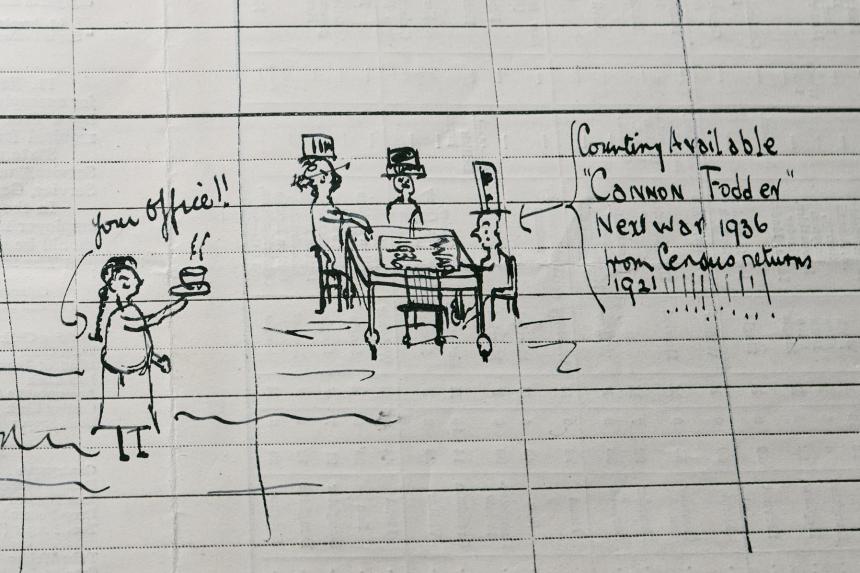 your office!!
WAR
1936
Counting Available
"Cannon Fodder"
Next War 1936
from Census returns
1921 !!!!!!!!!!